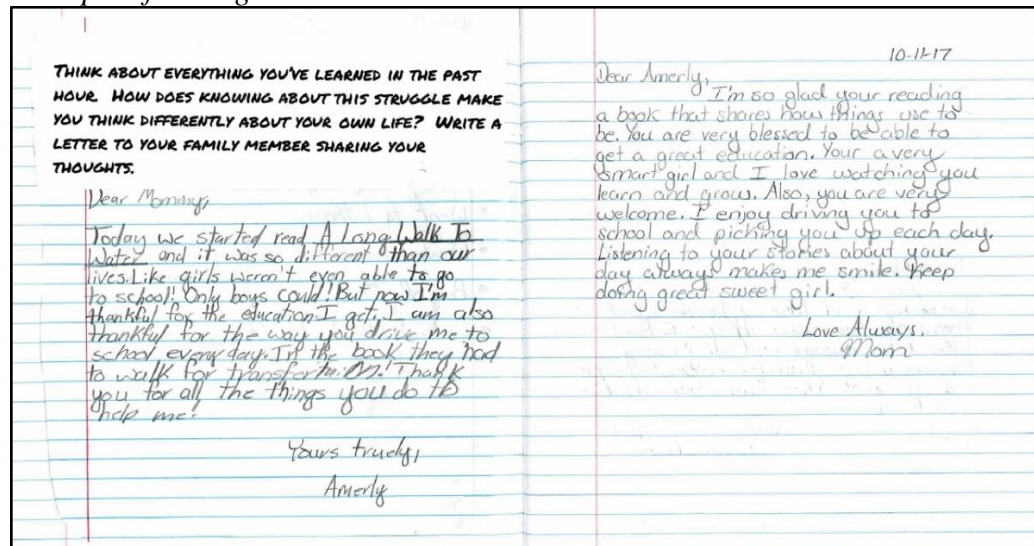 THINK ABOUT EVERYTHING YOU'VE LEARNED IN THE PAST
HOUR. HOW DOES KNOWING ABOUT THIS STRUGGLE MAKE
YOU THINK DIFFERENTLY ABOUT YOUR OWN LIFE? WRITE A
LETTER TO YOUR FAMILY MEMBER SHARING YOUR
THOUGHTS.
Dear Mommy,
Today we started read A Long Walk To
Water and it was so different than our
lives. Like girls weren't even able to go
to school! Only boys could! But now I'm
thankful for the education I get. I am also
thankful for the way you drive me to
school everyday. In the book they had
to walk for
Thank
you for all the things you do to
help me!
Yours truely,
Amerly
10-11-17
Dear Amerly,
I'm so glad your reading
a book that shares how things use to
be. You are very blessed to be able to
get a great education. Your a very
smart girl and I love watching you
learn and grow. Also, you are very
welcome. I enjoy driving you to
school and picking you up each day.
Listening to your stories about your
day always makes me smile. Keep
doing great sweet girl.
Love Always,
Mom